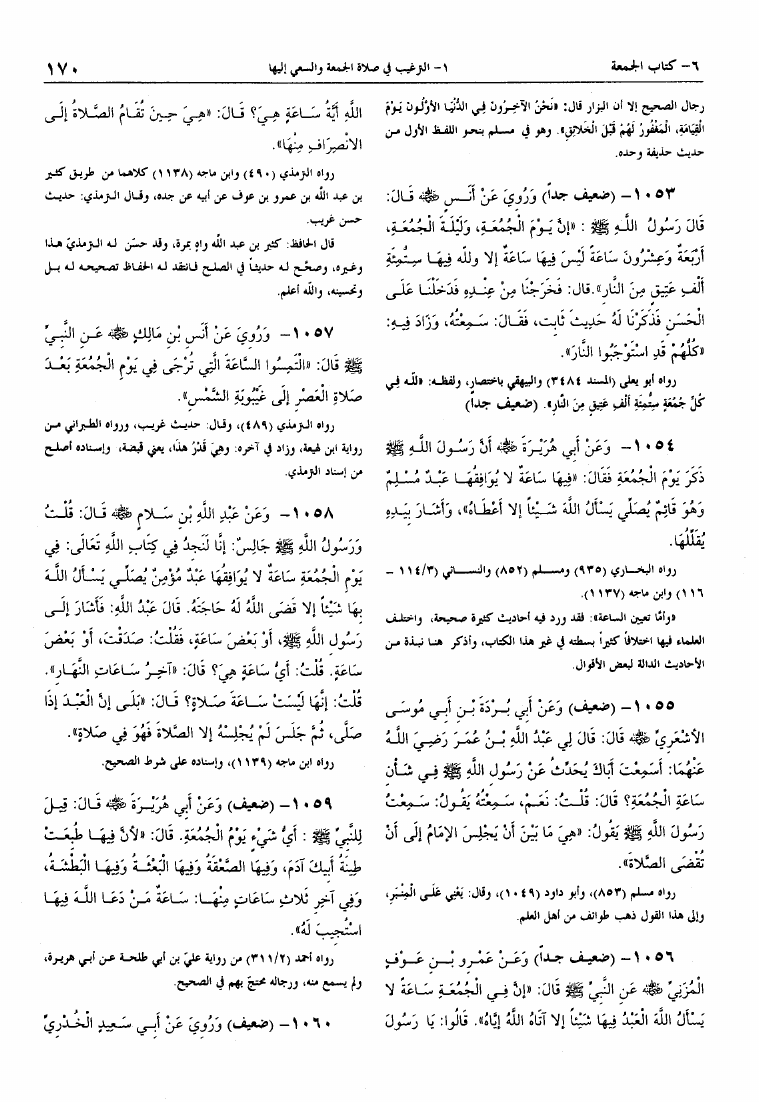 ٦- كتاب الجمعة
١- الترغيب في صلاة الجمعة والسعي إليها
١٧٠
رجال الصحيح إلا أن البزار قال: «نَحْنُ الآخِرُونَ فِي الدُّنْيَا الأَوَّلُونَ يَوْمَ
الْقِيَامَةِ، الْمَغْفُورُ لَهُمْ قَبْلَ الْخَلائِقِ». وهو في مسلم بنحو اللفظ الأول من
حديث حذيفة وحده.
١٠٥٣- (ضعيف جداً) وَرُوِيَ عَنْ أَنَسٍ ﷺ قَالَ:
قَالَ رَسُولُ اللَّهِ ﷺ : «إِنَّ يَوْمَ الْجُمُعَةِ، وَلَيْلَةَ الْجُمُعَةِ،
أَرْبَعَةٌ وَعِشْرُونَ سَاعَةً لَيْسَ فِيهَا سَاعَةٌ إِلا وللهِ فِيهَا سِتُّمِئَةِ
أَلْفِ عَتِيقٍ مِنَ النَّارِ».قال: فَخَرَجْنَا مِنْ عِنْدِهِ فَدَخَلْنَا عَلَى
الْحَسَنِ فَذَكَرْنَا لَهُ حَدِيثَ ثَابِت، فَقَالَ: سَمِعْتُهُ، وَزَادَ فِيهِ:
«كُلُّهُمْ قَدِ اسْتَوْجَبُوا النَّارَ».
رواه أبو يعلى (المسند ٣٤٨٤) والبيهقي باختصار، ولفظه: «للَّه فِي
كُلِّ جُمُعَةٍ سِتُّمِئَةِ أَلْفِ عَتِيقٍ مِنَ النَّارِ». (ضعيف جداً)
١٠٥٤- وَعَنْ أَبِي هُرَيْرَةَ ﷺ أَنَّ رَسُولَ اللَّهِ ﷺ
ذَكَرَ يَوْمَ الْجُمُعَةِ فَقَالَ: «فِيهَا سَاعَةٌ لا يُوَافِقُهَا عَبْدٌ مُسْلِمٌ
وَهُوَ قَائِمٌ يُصَلِّي يَسْأَلُ اللَّهَ شَيْئاً إِلا أَعْطَاهُ»، وَأَشَارَ بِيَدِهِ
يُقَلِّلُهَا.
رواه البخاري (٩٣٥) ومسلم (٨٥٢) والنسائي (١١٤/٣ -
١١٦) وابن ماجه (١١٣٧).
«وأمَّا تعيين الساعة»: فقد ورد فيه أحاديث كثيرة صحيحة، واختلف
العلماء فيها اختلافاً كثيراً بسطته في غير هذا الكتاب، وأذكر هنا نبذة من
الأحاديث الدالة لبعض الأقوال.
١٠٥٥- (ضعيف) وَعَنْ أَبِي بُرْدَةَ بْنِ أَبِي مُوسَى
الأَشْعَرِيِّ ﷺ قَالَ: قَالَ لِي عَبْدُ اللَّهِ بْنُ عُمَرَ رَضِيَ اللَّهُ
عَنْهُمَا: أَسَمِعْتَ أَبَاكَ يُحَدِّثُ عَنْ رَسُولِ اللَّهِ ﷺ فِي شَأْنِ
سَاعَةِ الْجُمُعَةِ؟ قَالَ: قُلْتُ: نَعَمْ، سَمِعْتُهُ يَقُولُ: سَمِعْتُ
رَسُولَ اللَّهِ ﷺ يَقُولُ: «هِيَ مَا بَيْنَ أَنْ يَجْلِسَ الإِمَامُ إِلَى أَنْ
تُقْضَى الصَّلاةُ».
رواه مسلم (٨٥٣)، وأبو داود (١٠٤٩)، وقال: يَعْنِي عَلَى الْمِنْبَرِ،
وإلى هذا القول ذهب طوائف من أهل العلم.
١٠٥٦- (ضعيف جداً) وَعَنْ عَمْرِو بْنِ عَوْفٍ
الْمُزَنِيِّ ﷺ عَنِ النَّبِيِّ ﷺ قَالَ: «إِنَّ فِي الْجُمُعَةِ سَاعَةً لا
يَسْأَلُ اللَّهَ الْعَبْدُ فِيهَا شَيْئاً إِلا آتَاهُ اللَّهُ إِيَّاهُ». قَالُوا: يَا رَسُولَ
اللَّهِ أَيَّةُ سَاعَةٍ هِيَ؟ قَالَ: «هِيَ حِينَ تُقَامُ الصَّلاةُ إِلَى
الانْصِرَافِ مِنْهَا».
رواه الترمذي (٤٩٠) وابن ماجه (١١٣٨) كلاهما من طريق كثير
بن عبد الله بن عمرو بن عوف عن أبيه عن جده، وقال الترمذي: حديث
حسن غريب.
قال الحافظ: كثير بن عبد الله واهٍ بمرة، وقد حسّن له الترمذيّ هذا
وغيره، وصحَّح له حديثاً في الصلح فانتقد له الحفاظ تصحيحه له بل
وتحسينه، والله أعلم.
١٠٥٧- وَرُوِيَ عَنْ أَنَسِ بْنِ مَالِكٍ ﷺ عَنِ النَّبِيِّ
ﷺ قَالَ: «الْتَمِسُوا السَّاعَةَ الَّتِي تُرْجَى فِي يَوْمِ الْجُمُعَةِ بَعْدَ
صَلاةِ الْعَصْرِ إِلَى غَيْبُوبَةِ الشَّمْسِ».
رواه الترمذي (٤٨٩)، وقال: حديث غريب، ورواه الطبراني من
رواية ابن لهيعة، وزاد في آخره: وهيَ قَدْرُ هذَا، يعني قبضة، وإسناده أصلح
من إسناد الترمذي.
١٠٥٨- وَعَنْ عَبْدِ اللَّهِ بْنِ سَلامٍ ﷺ قَالَ: قُلْتُ
وَرَسُولُ اللَّهِ ﷺ جَالِسٌ: إِنَّا لَنَجِدُ فِي كِتَابِ اللَّهِ تَعَالَى: فِي
يَوْمِ الْجُمُعَةِ سَاعَةٌ لا يُوَافِقُهَا عَبْدٌ مُؤْمِنٌ يُصَلِّي يَسْأَلُ اللَّهَ
بِهَا شَيْئاً إِلا قَضَى اللَّهُ لَهُ حَاجَتَهُ. قَالَ عَبْدُ اللَّهِ: فَأَشَارَ إِلَى
رَسُولُ اللَّهِ ﷺ، أَوْ بَعْضَ سَاعَةٍ، فَقُلْتُ: صَدَقْتَ، أَوْ بَعْضَ
سَاعَةٍ. قُلْتُ: أَيُّ سَاعَةٍ هِيَ؟ قَالَ: «آخِرُ سَاعَاتِ النَّهَارِ».
قُلْتُ: إِنَّهَا لَيْسَتْ سَاعَةَ صَلاةٍ؟ قَالَ: «بَلَى إِنَّ الْعَبْدَ إِذَا
صَلَّى، ثُمَّ جَلَسَ لَمْ يُجْلِسْهُ إِلا الصَّلاةُ فَهُوَ فِي صَلاةٍ».
رواه ابن ماجه (١١٣٩)، وإسناده على شرط الصحيح.
١٠٥٩- (ضعيف) وَعَنْ أَبِي هُرَيْرَةَ ﷺ قَالَ: قِيلَ
لِلنَّبِيِّ ﷺ : أَيُّ شَيْءٍ يَوْمُ الْجُمُعَةِ. قَالَ: «لأَنَّ فِيهَا طُبِعَتْ
طِينَةُ أَبِيكَ آدَمَ، وَفِيهَا الصَّعْقَةُ وَفِيهَا الْبَعْثَةُ وَفِيهَا الْبَطْشَةُ،
وَفِي آخِرِ ثَلاثِ سَاعَاتٍ مِنْهَا: سَاعَةٌ مَنْ دَعَا اللَّهَ فِيهَا
اسْتُجِيبَ لَهُ».
رواه أحمد (٣١١/٢) من رواية عليّ بن أبي طلحة عن أبي هريرة،
ولم يسمع منه، ورجاله محتجّ بهم في الصحيح.
١٠٦٠- (ضعيف) وَرُوِيَ عَنْ أَبِي سَعِيدٍ الْخُدْرِيِّ